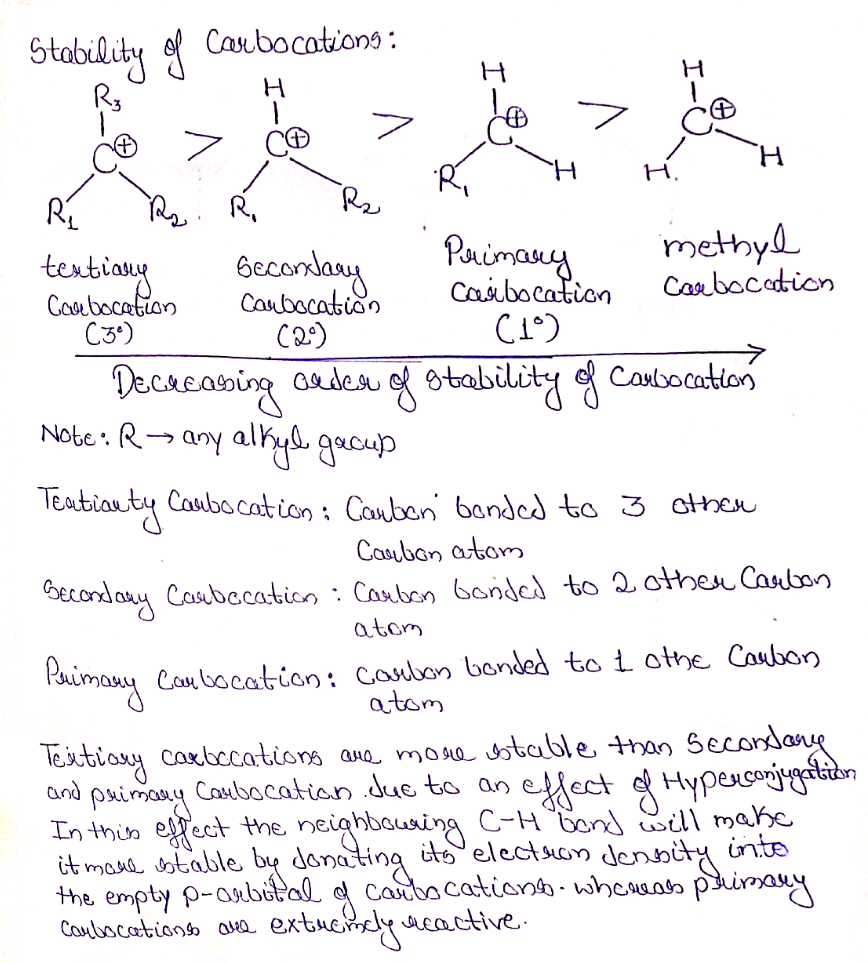 Stability of Carbocations:
R3 H H H
C⊕ > C⊕ > C⊕ > C⊕
R1 R2 R1 R2 R1 H H H
tertiary Secondary Primary methyl
Carbocation Carbocation Carbocation Carbocation
(3°) (2°) (1°)
Decreasing order of stability of Carbocation
Note: R → any alkyl group
Teatiauty Carbocation: Carbon bonded to 3 other
Carbon atom
Secondary Carbocation: Carbon bonded to 2 other Carbon
atom
Primary Carbocation: Carbon bonded to 1 othe Carbon
atom
Tertiary carbocations are more stable than Secondary
and primary Carbocation due to an effect of Hyperconjugation
In this effect the neighbouring C-H bond will make
it more stable by donating its electron density into
the empty p-orbital of carbocations. whereas primary
Carbocations are extremely reactive.